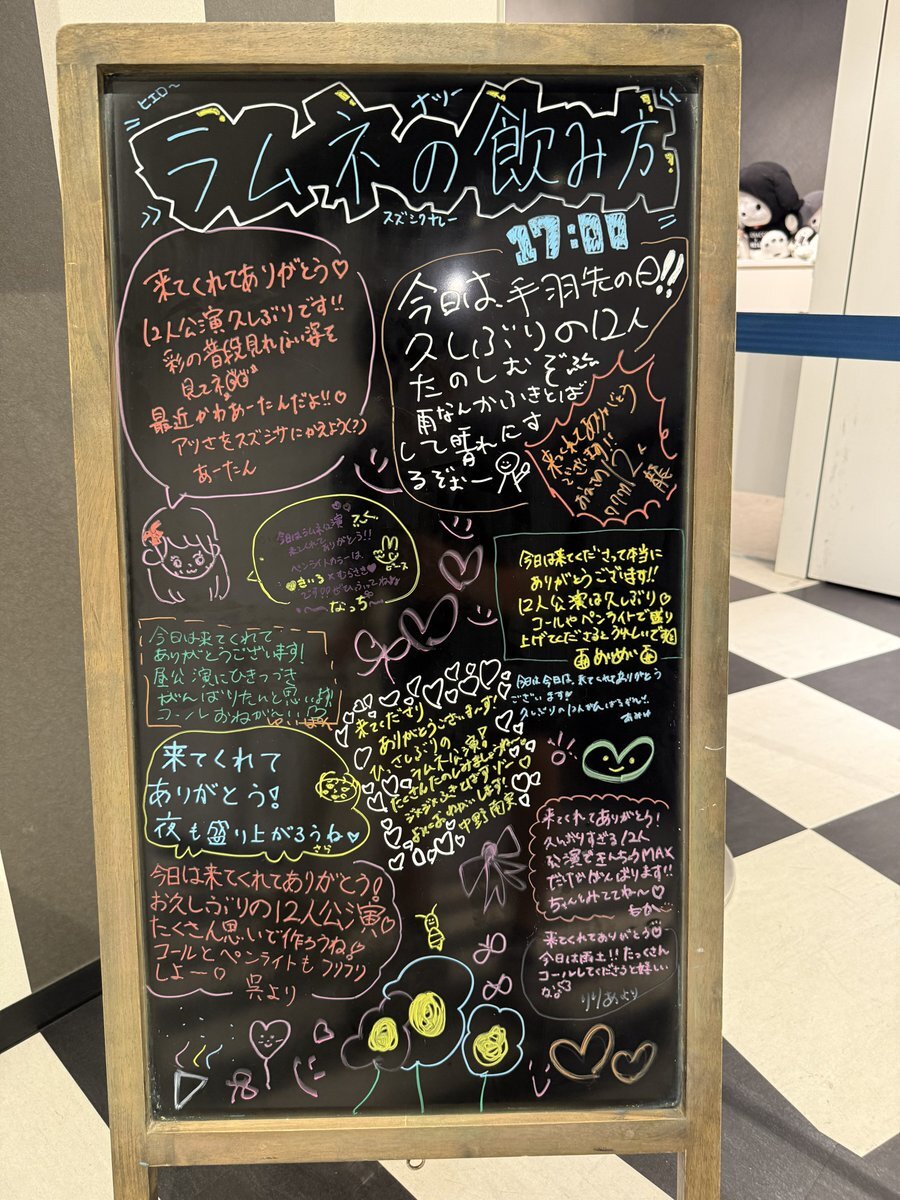 ヒエロ〜
ナツー
ラムネの飲み方
スズシクナレー
17:00
来てくれてありがとう♡
12人公演久しぶりです!!
彩の普段見れない姿を
見てネ
最近かわあーたんだよ!!♡
アツさをスズシサにかえよう(?)
あーたん
今日は、手羽先の日!!
久しぶりの12人
たのしむぞ
雨なんかふきとば
して晴れにす
るぞぉー
来てくれてありがとう
ございます!!
今日はラムネ公演
来てくれて
ありがとう!!
ペンライトカラーは、
きいろ×むらさき♡
なっち
ロース
今日は来てくださって本当に
ありがとうございます!!
12人公演は久しぶり♡
コールやペンライトで盛り
上げてくださるとうれしいです
めいめい
今日は来てくれて
ありがとうございます!
昼公演にひきつづき
がんばりたいと思います
コールおねがい
今日は今日は、来てくれてありがとう
ございます!!
久しぶりの12人がんばるぞん!
来てくれて
ありがとう!
夜も盛り上がろうね♡
さら
来てくださり
ありがとうございます!
ひさしぶりの
ラムネ公演!
たくさんたのしみましょうぞー
よろしくおねがいします!
中野南実
来てくれてありがとう!
久しぶりすぎる12人
公演できんちょうMAX
だけどがんばります!!
ちゃんとみててね〜♡
もか
今日は来てくれてありがとう!
お久しぶりの12人公演♡
たくさん思いで作ろうね!
コールとペンライトもフリフリ
しよー♡
呉より
来てくれてありがとう♡
今日は雨土!!たっくさん
コールしてくださると嬉しい
な♡
りりあより